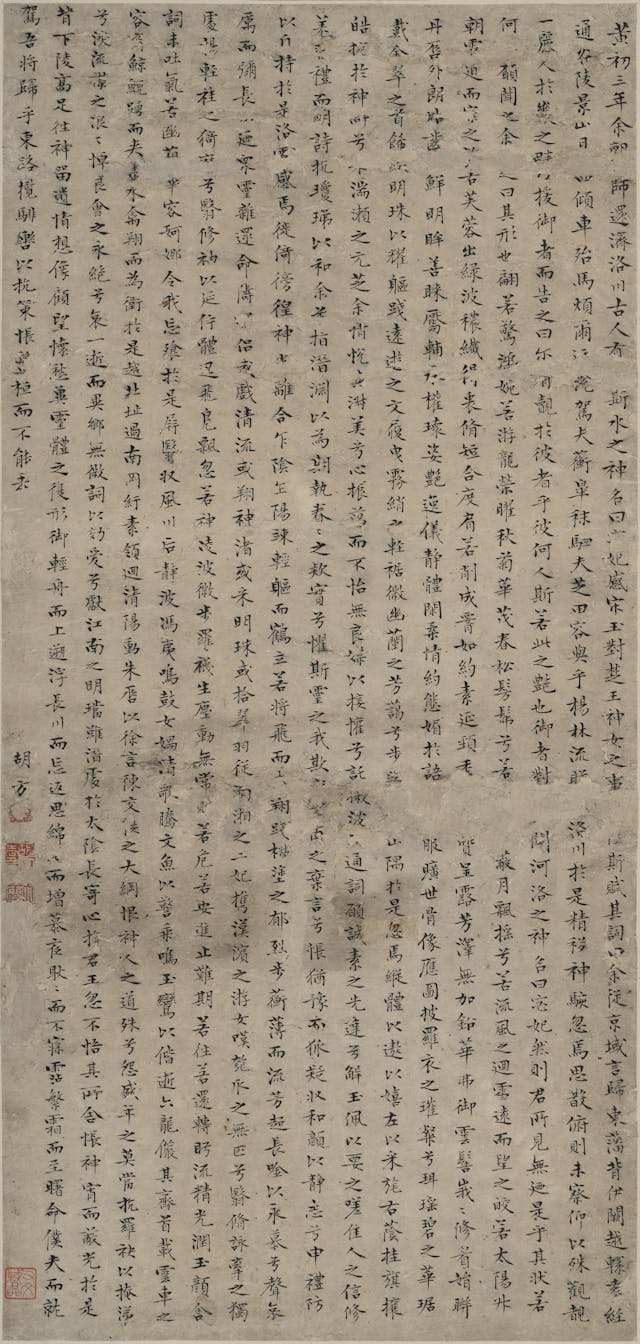 黃初三年余朝師還濟洛川古人有斯水之神名曰宓妃感宋玉對楚王神女之事作斯賦其詞曰余從京域言歸東藩背伊闕越轘轅經
通谷陵景山日西傾車殆馬煩爾迺駕夫蘅皐秣駟夫芝田容與乎楊林流眄洛川於是精移神駭忽焉思散俯則未察仰以殊觀覩
一麗人於巖之畔援御者而告之曰尔有覿於彼者乎彼何人斯若此之艷也御者對聞河洛之神名曰宓妃然則君所見無廼是乎其狀若
何願聞之余之曰其形也翩若驚鴻婉若游龍榮曜秋菊華茂春松髣髴兮若蔽月飄揺兮若流風之迴雪遠而望之皎若太陽升
朝霞迫而察之若芙蓉出綠波穠纖得衷脩短合度肩若削成腰如約素延頸秀質呈露芳澤無加鉛華弗御雲髻峩々脩眉娟聯
丹脣外朗皓齒鮮明眸善睞靨輔承權瓌姿艷逸儀靜體閑柔情約態媚於語服曠世骨像應圖披羅衣之璀粲兮珥瑤碧之華琚
戴金翠之首飾綴明珠以耀軀踐遠遊之文履曳霧綃之輕裾微幽蘭之芳藹兮步踟山隅於是忽焉縱體以遨以嬉左以采旄右蔭桂旗攘
皓捥於神滸兮湍瀨之元芝余情悅其淑美兮心振蕩而不怡無良媒以接懽兮託微波通詞願誠素之先達兮解玉佩以要之嗟佳人之信修
羗習禮而明詩抗瓊珶以和余兮指潛淵以為期執眷々之款實兮懼斯靈之我欺交甫之棄言兮悵猶豫而狐疑收和顏以靜志兮申禮防
以自持於是洛靈感焉徙倚徬徨神光離合乍陰乍陽竦輕軀而鶴立若將飛而未翔踐椒塗之郁烈步蘅薄而流芳超長唫以永慕兮聲哀
厲而彌長爾迺衆靈雜遝命儔嘯侶或戲清流或翔神渚或采明珠或拾翠羽從南湘之二妃攜漢濱之游女嘆匏瓜之無匹兮詠牽牛之獨
處揚輕袿之猗靡兮翳修袖以延佇體迅飛鳧飄忽若神凌波微步羅襪生塵動無常則若危若安進止難期若往若還轉眄流精光潤玉顏含
詞未吐氣若幽蘭華容婀娜令我忘飡於是屏翳收風川后靜波馮夷鳴鼓女媧清歌騰文魚以警乘鳴玉鸞以偕逝六龍儼其齊首載雲車之
容裔鯨鯢踴而夾轂水禽翔而為衛於是越北沚過南岡紆素領迴清陽動朱脣以徐言陳交接之大綱恨神人之道殊兮怨盛年之莫當抗羅袂以掩涕
兮淚流襟之浪々悼良會之永絕兮哀一逝而異鄉無微詞以効愛兮獻江南之明璫雖潛處於太陰長寄心於君王忽不悟其所舍悵神宵而蔽光於是
背下陵高足往神留遺情想像顧望懷愁冀靈體之復形御輕舟而上遡浮長川而忘返思綿々而增慕夜耿々而不寐霑繁霜而至曙命僕夫而就
駕吾將歸乎東路攬騑轡以抗策悵盤桓而不能去
胡方